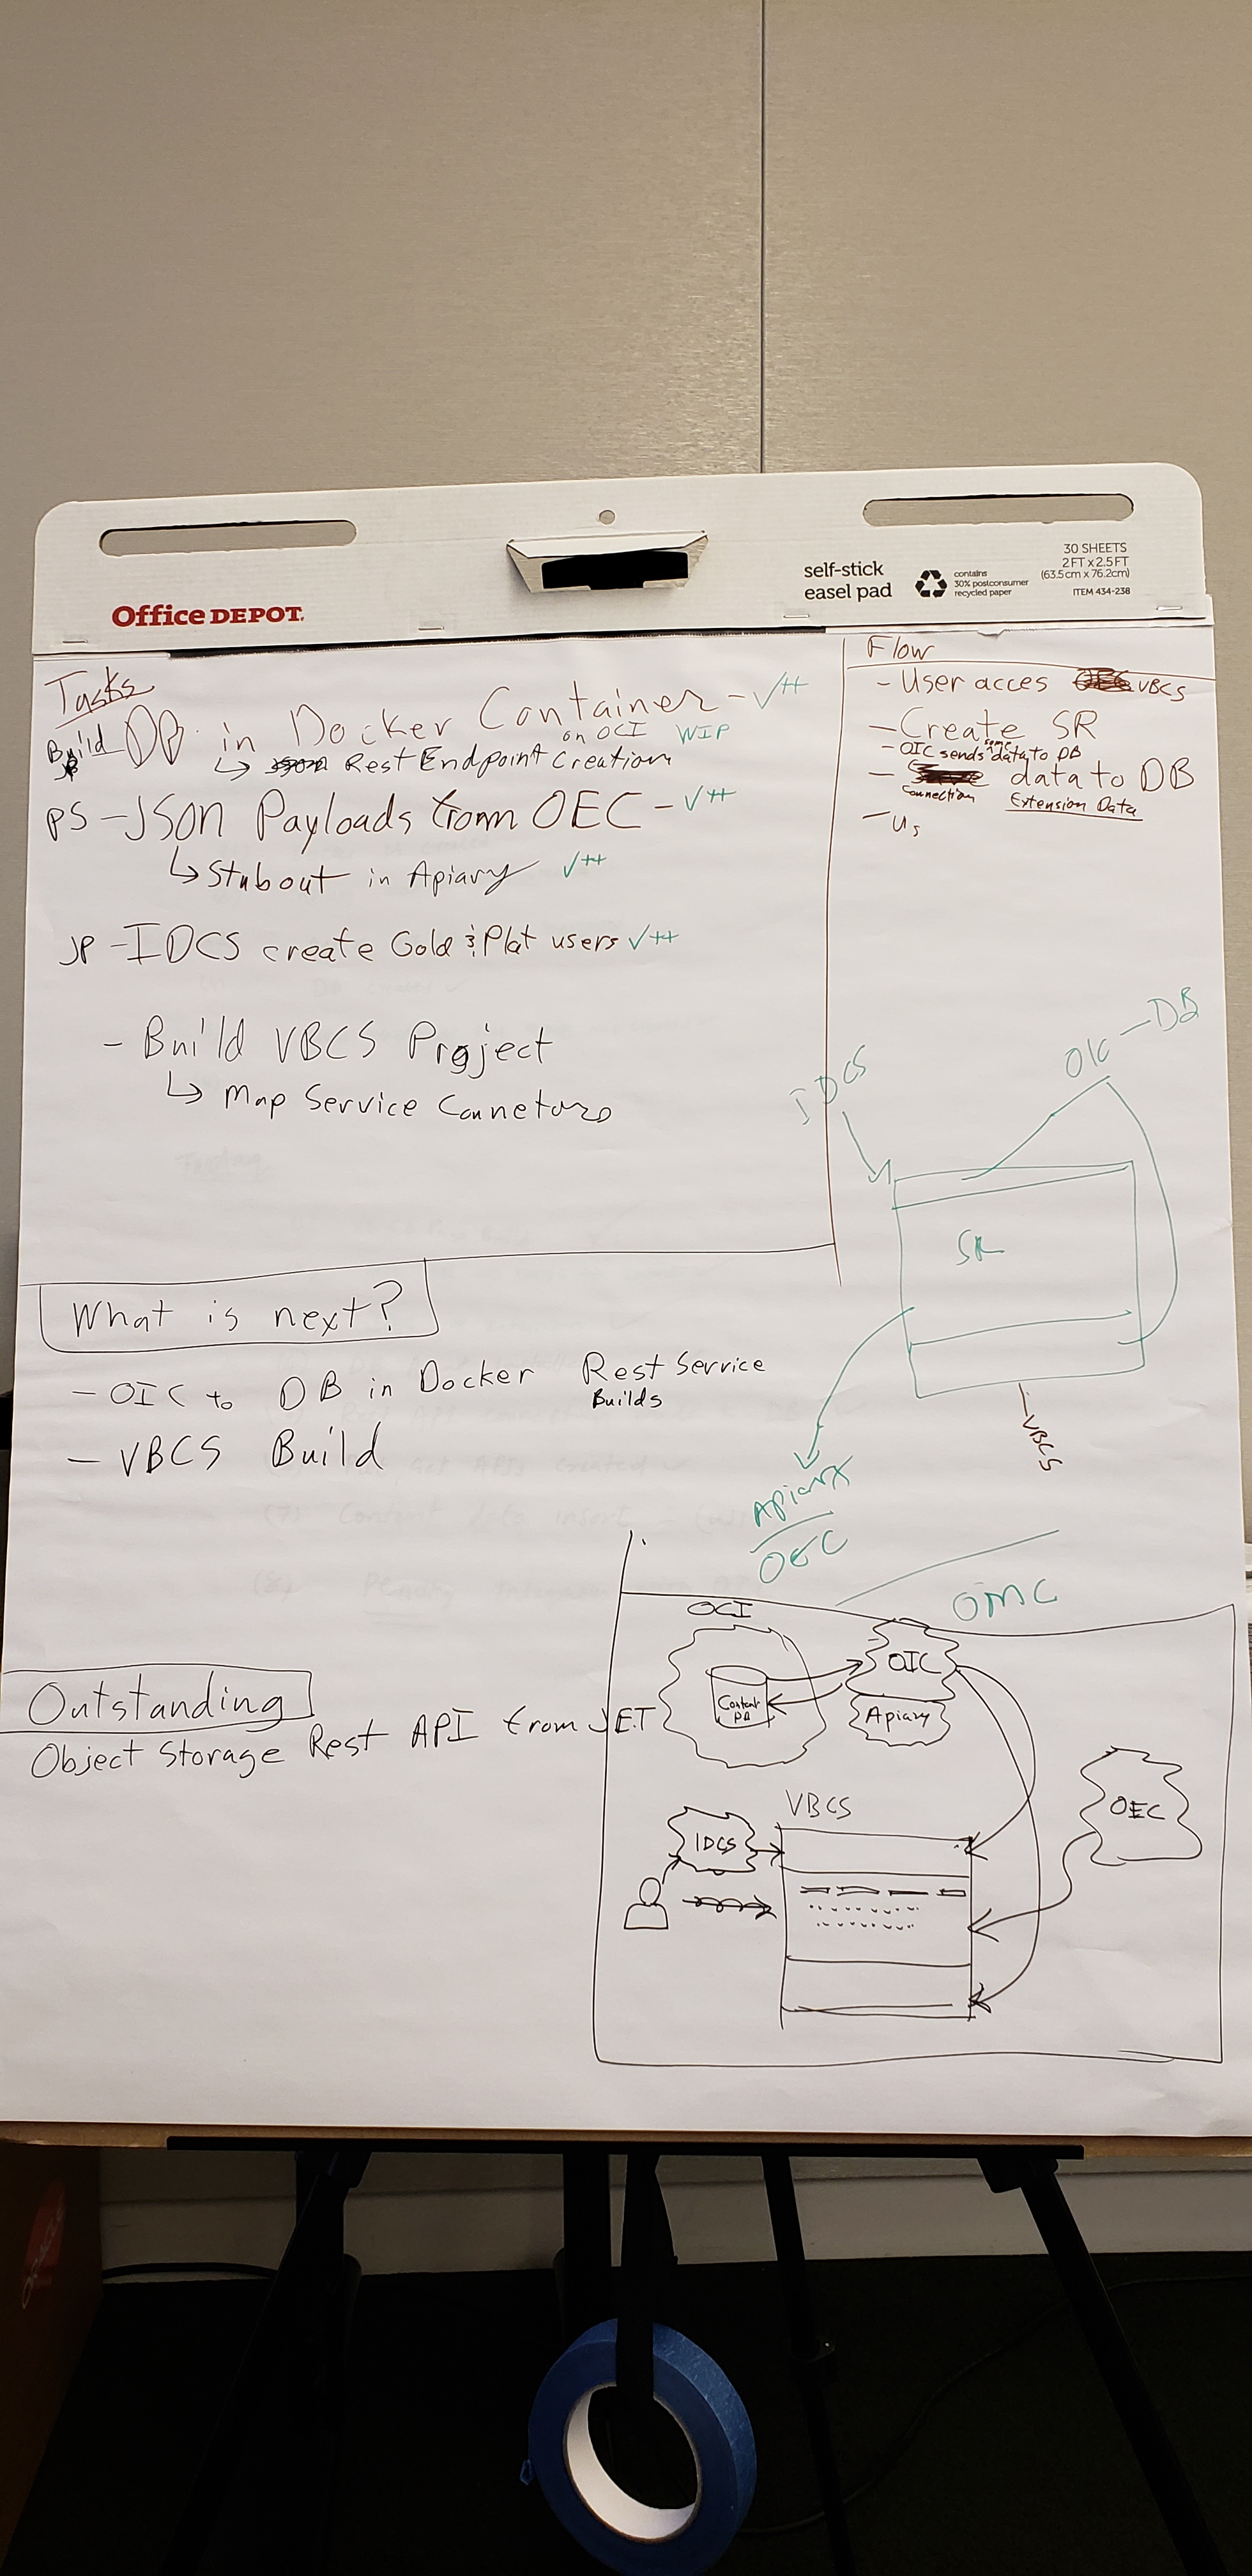 Office DEPOT.
self-stick
easel pad
contains
30% postconsumer
recycled paper
30 SHEETS
2 FT x 2.5 FT
(63.5 cm x 76.2 cm)
ITEM 434-238
Tasks
Build DB in Docker Container - √++
on OCI WIP
↳ Rest Endpoint Creation
PS - JSon Payloads from OEC - √++
↳ Stubout in Apiary √++
JP - IDCS create Gold & Plat users √++
- Build VBCS Project
↳ Map Service Connetors
Flow
- User acces VBCS
- Create SR
- OIC sends some data to DB
- data to DB
Connection Extension Data
- Us
IDCS
OIC - DB
SR
VBCS
Apiary
OEC
OMC
What is next?
- OIC to DB in Docker Rest Service
Builds
- VBCS Build
Outstanding
Object Storage Rest API from JET
OCI
OIC
Content
DB
Apiary
VBCS
IDCS
OEC